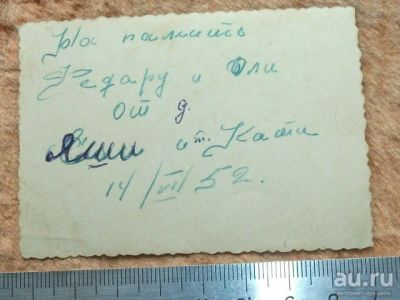 На память
Эдару и Оли
от д.
Яши и т. Кати
14/VII 52.
au.ru